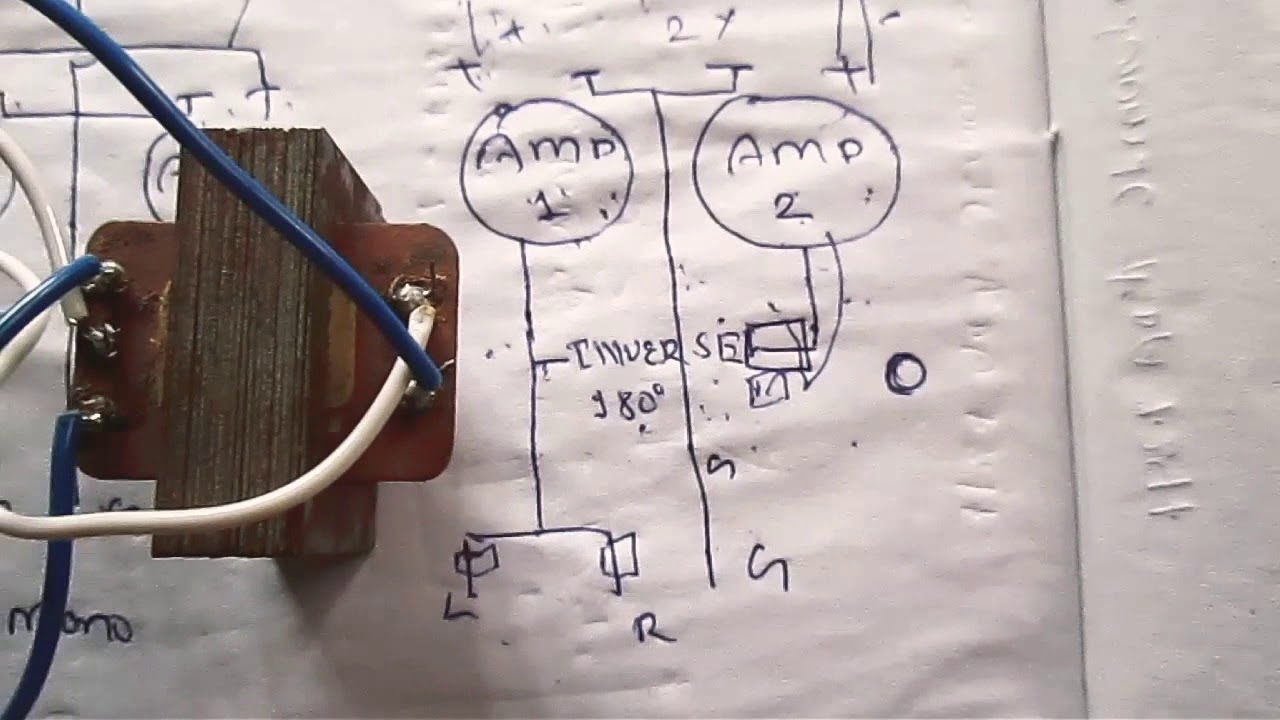 2 Y
AMP
1
AMP
2
INVERSE
180°
G
G
L
R
mono